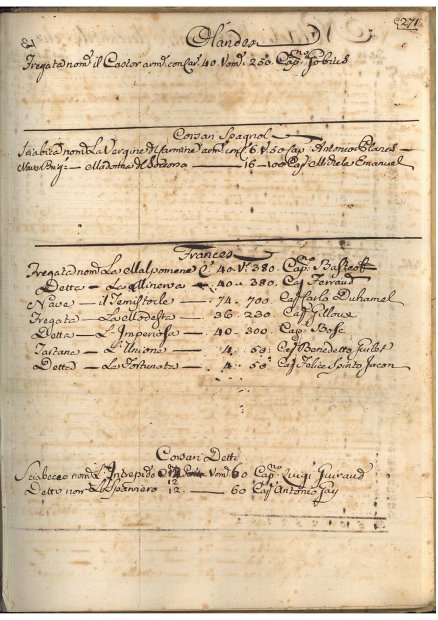 271
Olandesi
Fregata nom.ta il Castor arm.ta con Can. 40. Vom. 250. Cap.no
Corsari Spagnoli
nom.ta La Vergine del Carmine arm.ta con C. 6. V. 50 Cap. Antonio
Madonna del Soccorso — 16 — 100 Cap. Michele Emanuel
Francesi
Fregata nom.ta La Malpomene C. 40. V. 380. Cap.no
Detta — La Minerva — 40 — 380. Cap. Ferraud
Nave — il Temistocle — 74. 700. Cap. Carlo Duhamel
Fregata — La Modesta — 36 230. Cap.
Detta — L'Imperiosa — 40. 300. Cap. Bosc
Tartana — L'Unione — 4. 50. Cap. Benedetto
Detta — La Fortunata — 4. 50. Cap. Felice
Corsari Detti
Sciabecco nom.to L'Intrepido Vom. 60. Cap.no Luigi Guiraud
12
Detto nom. 12. — 60 Cap. Antonio